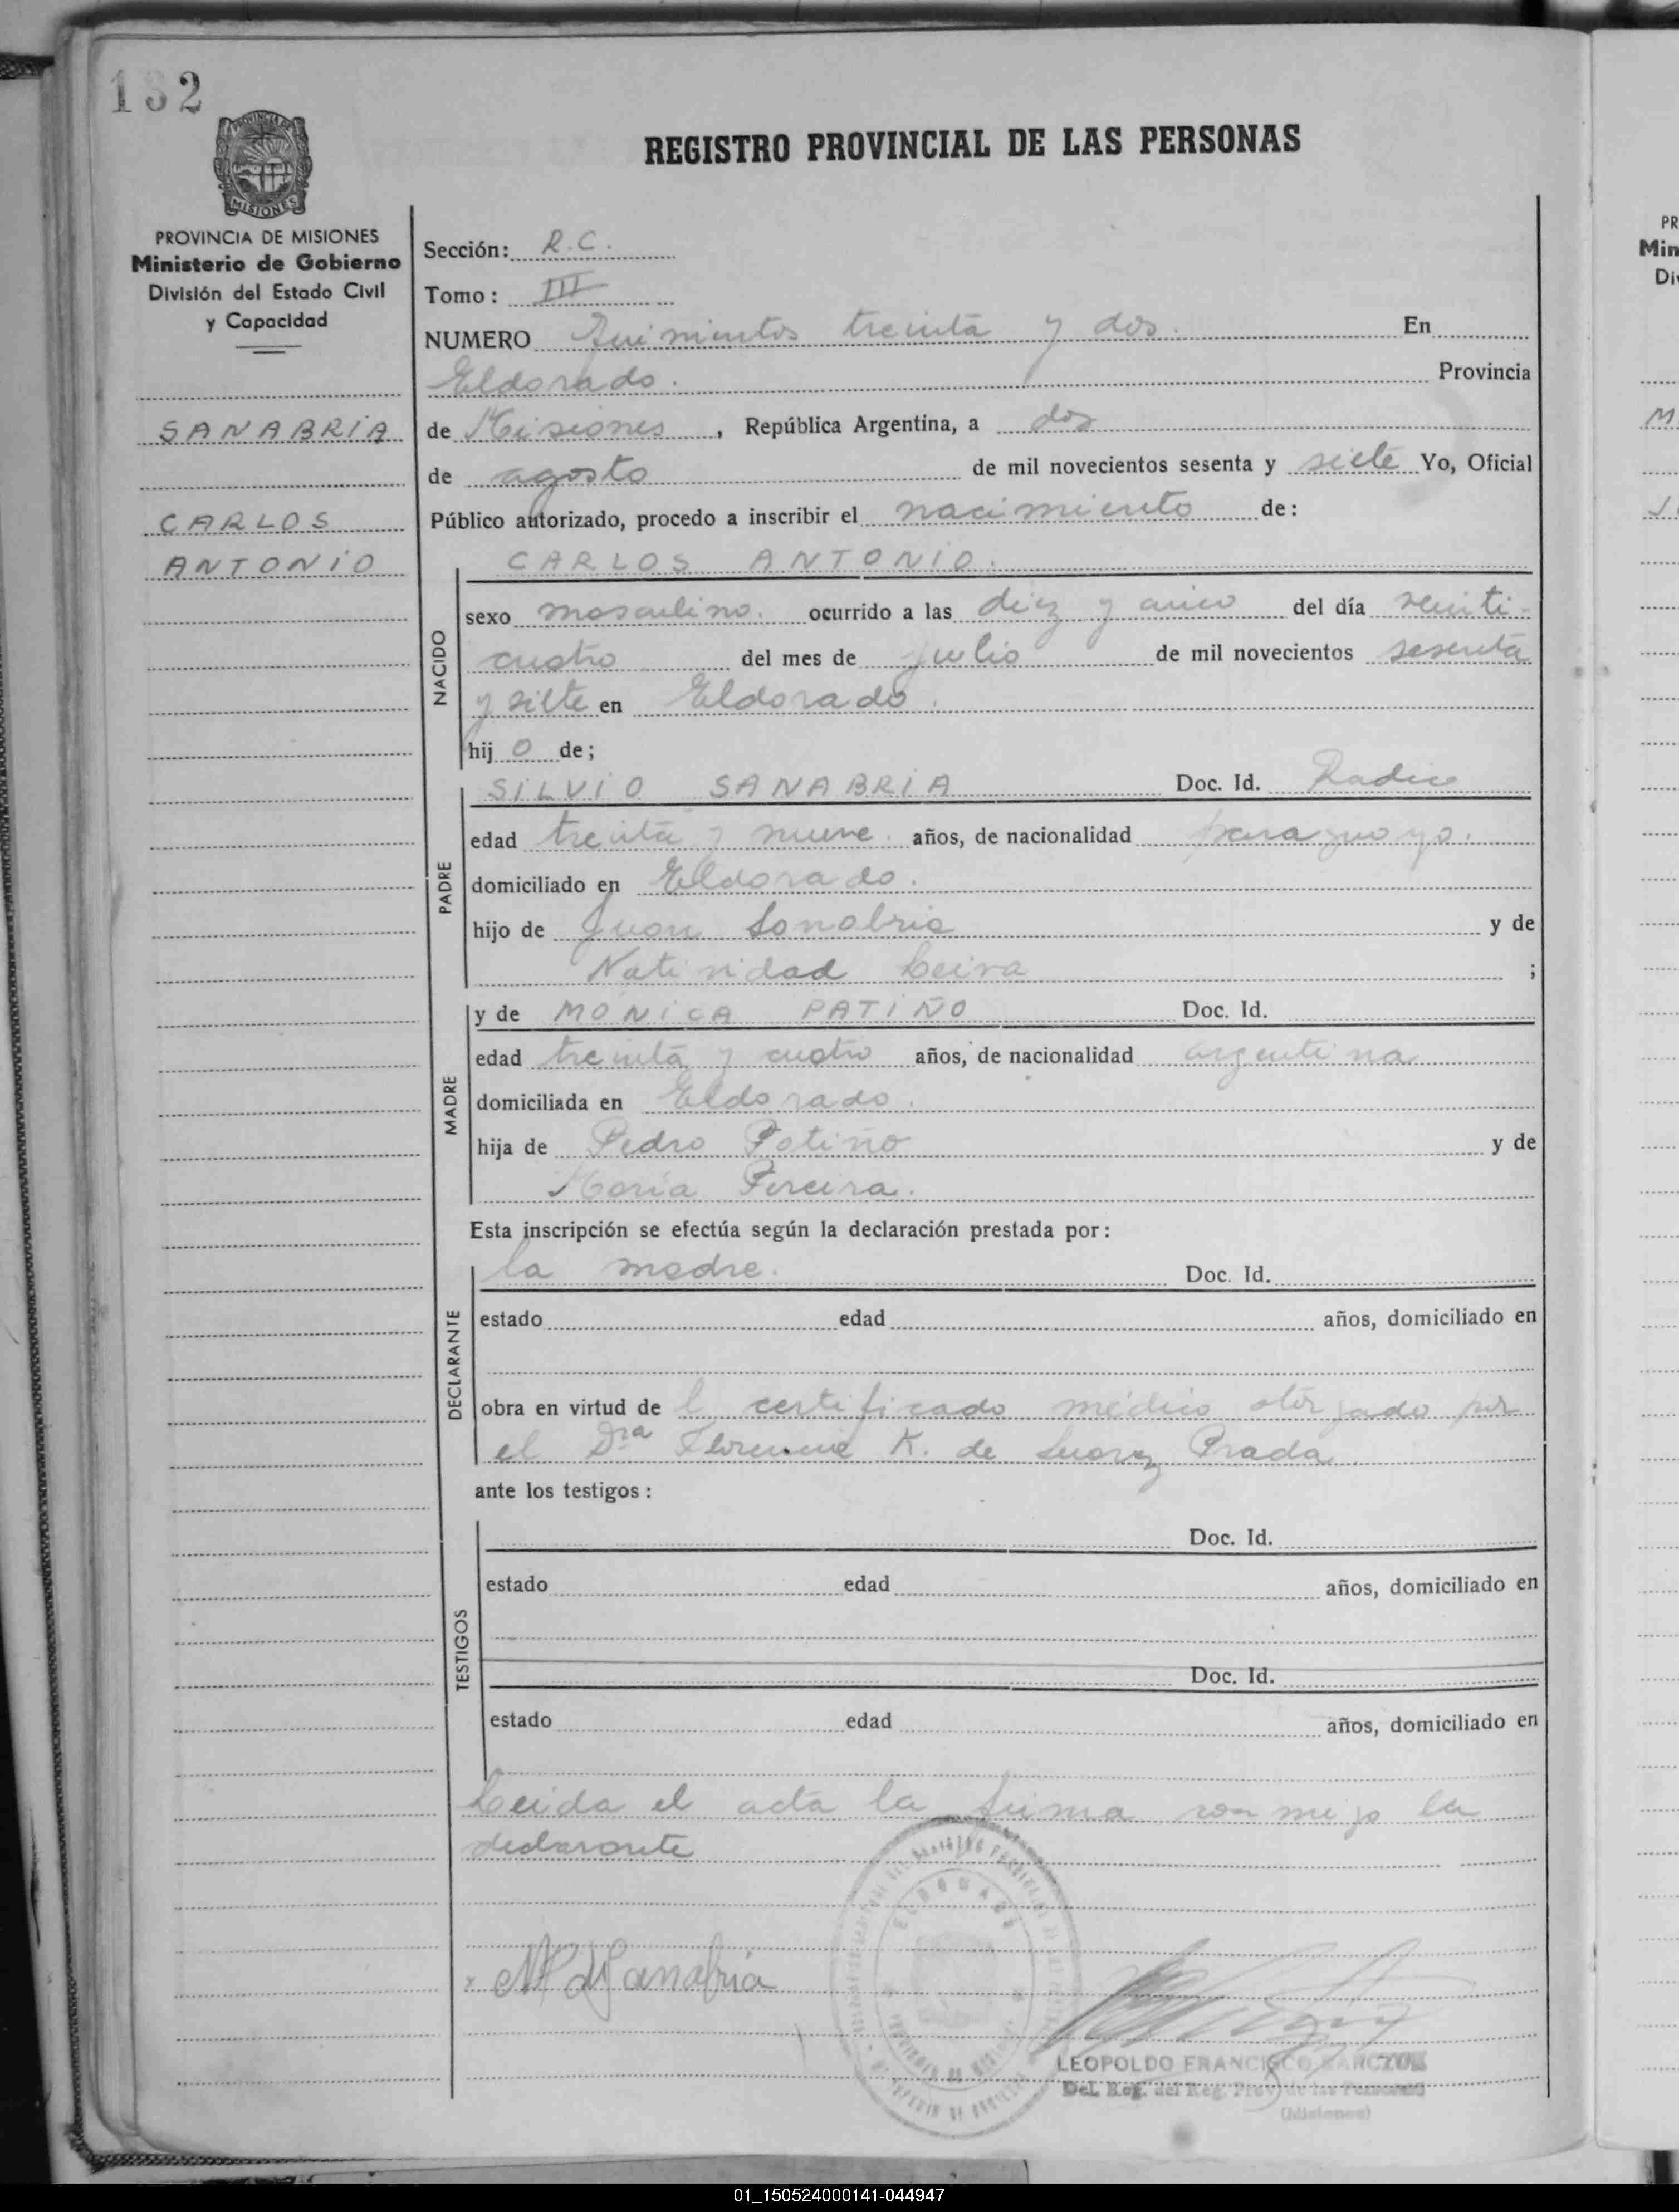 132
PROVINCIA DE
MISIONES
REGISTRO PROVINCIAL DE LAS PERSONAS
PROVINCIA DE MISIONES
Ministerio de Gobierno
División del Estado Civil
y Capacidad
SANABRIA
CARLOS
ANTONIO
Sección: R.C.
Tomo: III
NUMERO Quinientos treinta y dos. En
Eldorado. Provincia
de Misiones, República Argentina, a dos
de agosto de mil novecientos sesenta y siete Yo, Oficial
Público autorizado, procedo a inscribir el nacimiento de:
CARLOS ANTONIO.
NACIDO
sexo masculino. ocurrido a las diez y cinco del día veinti-
cuatro del mes de julio de mil novecientos sesenta
y siete en Eldorado.
hij o de;
PADRE
SILVIO SANABRIA Doc. Id. Radic
edad treinta y nueve. años, de nacionalidad paraguayo.
domiciliado en Eldorado.
hijo de Juan Sanabria y de
Natividad Leiva ;
MADRE
y de MONICA PATIÑO Doc. Id.
edad treinta y cuatro años, de nacionalidad argentina
domiciliada en Eldorado.
hija de Pedro Patiño y de
María Pereira.
Esta inscripción se efectúa según la declaración prestada por:
DECLARANTE
la madre. Doc. Id.
estado edad años, domiciliado en
obra en virtud de l certificado médico otorgado por
el Dra K. de Suarez Prada
ante los testigos:
TESTIGOS
Doc. Id.
estado edad años, domiciliado en
Doc. Id.
estado edad años, domiciliado en
Leida el acta la firma conmigo la
declarante
Sanabria
ELDORADO
LEOPOLDO FRANCISCO
Del. Reg. del Reg. Prov. de las Personas
(Misiones)
PR
Min
Di
M
J
01_150524000141-044947